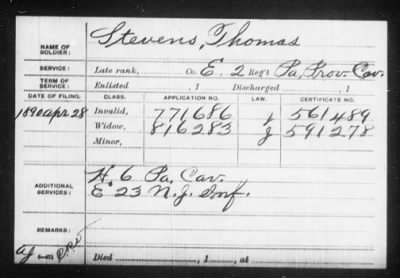 Stevens, Thomas
NAME OF SOLDIER:
SERVICE: Late rank, Co. E. 2 Reg't Pa, Prov. Cav.
TERM OF SERVICE: Enlisted , 1 Discharged , 1
DATE OF FILING. CLASS. APPLICATION NO. LAW. CERTIFICATE NO.
1890 Apr 28 Invalid, 771686 J 561489
Widow, 816283 J 591278
Minor,
H. 6 Pa, Cav.
ADDITIONAL SERVICES: E 23 N.J. Inf.
REMARKS:
Died , 1 , at